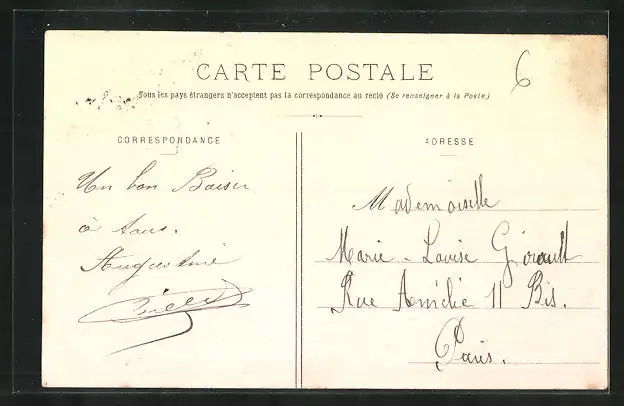 CARTE POSTALE
6
Tous les pays étrangers n'acceptent pas la correspondance au recto (Se renseigner à la Poste)
CORRESPONDANCE
Un bon Baiser
à tous.
Augustine
ADRESSE
Mademoiselle
Marie-Louise Girault
Rue Amélie 11 Bis.
Paris.